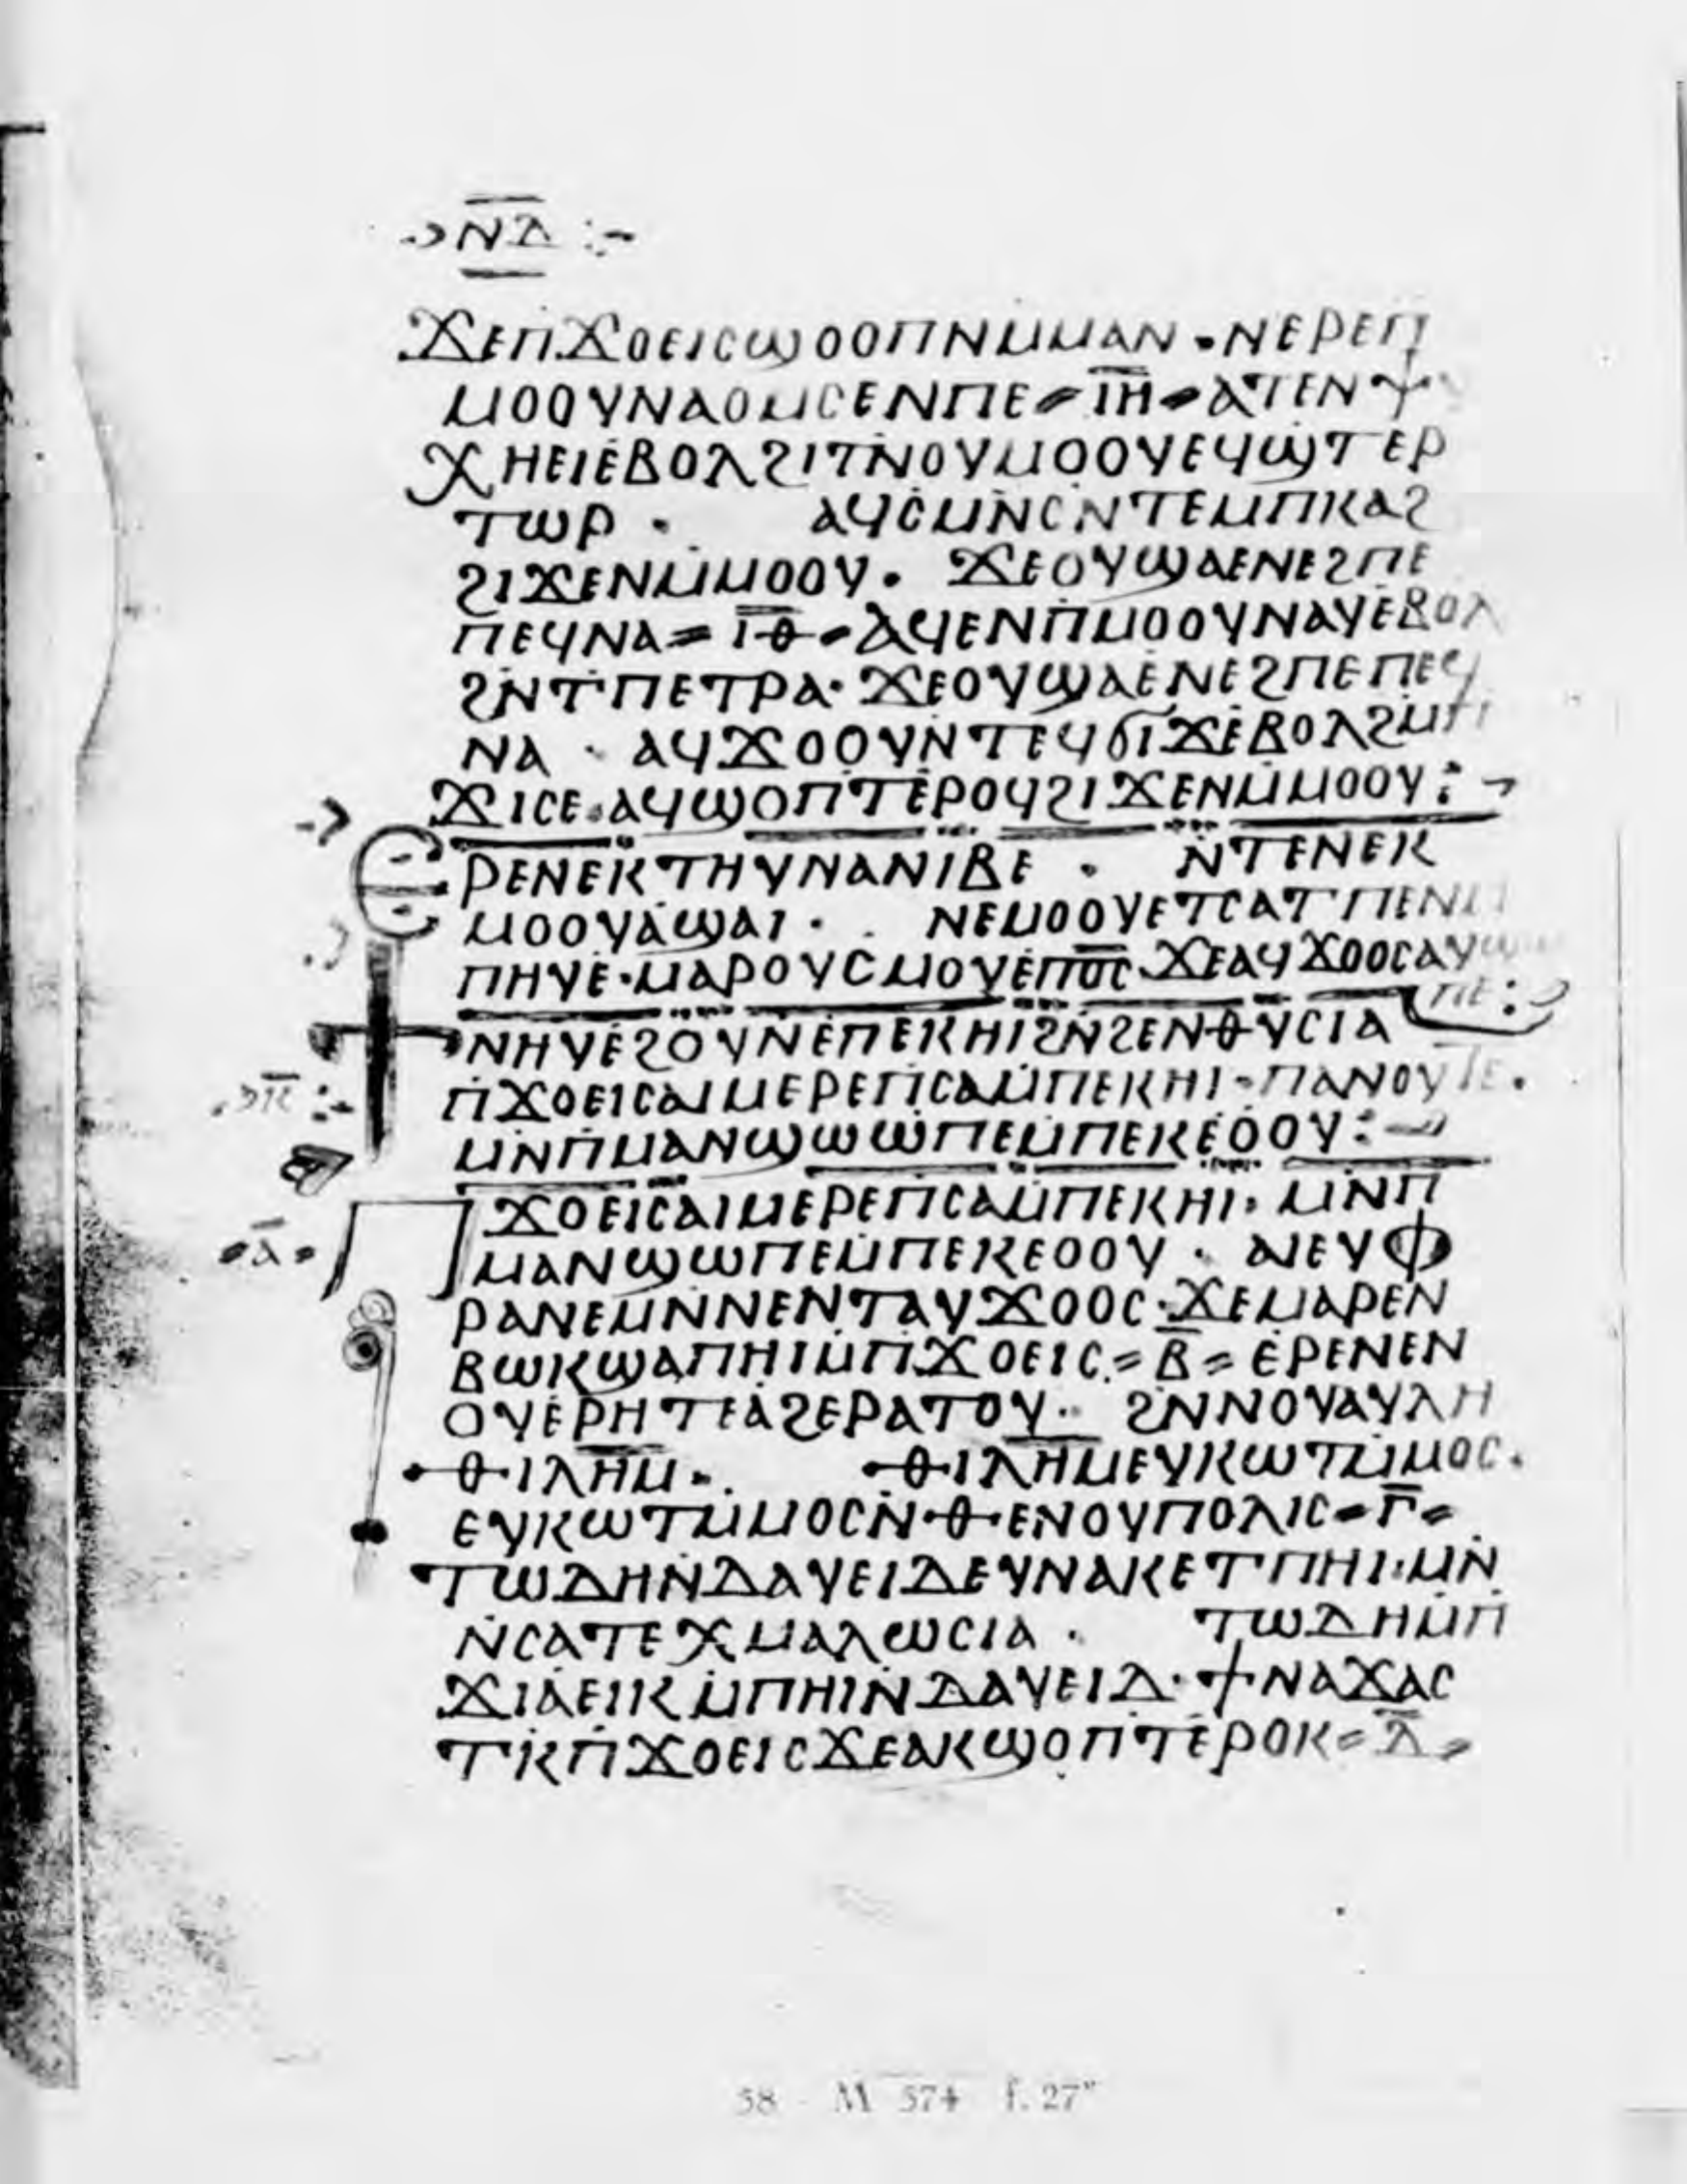 ⲛⲇ
ϫⲉⲡϫⲟⲉⲓⲥϣⲟⲟⲡⲛⲙⲙⲁⲛ · ⲛⲉⲣⲉⲡ
ⲙⲟⲟⲩⲛⲁⲟⲙⲥⲉⲛⲡⲉ = ⲓ̅ⲏ̅ = ⲁⲧⲉⲛⲯ
ⲭⲏⲉⲓⲉⲃⲟⲗϩⲓⲧⲛⲟⲩⲙⲟⲟⲩⲉϥϣⲧⲉⲣ
ⲧⲱⲣ · ⲁϥⲥⲙⲛⲥⲛⲧⲉⲙⲡⲕⲁϩ
ϩⲓϫⲉⲛⲙⲙⲟⲟⲩ · ϫⲉⲟⲩϣⲁⲉⲛⲉϩⲡⲉ
ⲡⲉϥⲛⲁ = ⲓ̅ⲑ̅ = ⲁϥⲉⲛⲡⲙⲟⲟⲩⲛⲁⲩⲉⲃⲟⲗ
ϩⲛⲧⲡⲉⲧⲣⲁ · ϫⲉⲟⲩϣⲁⲉⲛⲉϩⲡⲉⲡⲉϥ
ⲛⲁ · ⲁϥϫⲟⲟⲩⲛⲧⲉϥϭⲓϫⲉⲃⲟⲗϩⲙⲡ
ϫⲓⲥⲉ · ⲁϥϣⲟⲡⲧⲉⲣⲟϥϩⲓϫⲉⲛⲙⲙⲟⲟⲩ :
ⲉⲣⲉⲛⲉⲕⲧⲏⲩⲛⲁⲛⲓⲃⲉ · ⲛⲧⲉⲛⲉⲕ
ⲙⲟⲟⲩⲁϣⲁⲓ · ⲛⲉⲙⲟⲟⲩⲉⲧⲥⲁⲧⲡⲉⲛⲙ
ⲡⲏⲩⲉ · ⲙⲁⲣⲟⲩⲥⲙⲟⲩⲉⲡⲟ̅ⲥ̅ · ϫⲉⲁϥϫⲟⲟⲥⲁⲩϣⲱ
ⲡⲉ :
ⲛⲏⲩⲉϩⲟⲩⲛⲉⲡⲉⲕⲏⲓϩⲛϩⲉⲛⲑⲩⲥⲓⲁ
ⲡ̅ⲉ̅ :
ⲡϫⲟⲉⲓⲥⲁⲓⲙⲉⲣⲉⲡⲥⲁⲙⲡⲉⲕⲏⲓ · ⲡⲁⲛⲟⲩⲧⲉ ·
ⲙⲛⲡⲙⲁⲛϣⲱⲱⲡⲉⲙⲡⲉⲕⲉⲟⲟⲩ :
ⲁ̅
ⲡϫⲟⲉⲓⲥⲁⲓⲙⲉⲣⲉⲡⲥⲁⲙⲡⲉⲕⲏⲓ · ⲙⲛⲡ
ⲙⲁⲛϣⲱⲡⲉⲙⲡⲉⲕⲉⲟⲟⲩ · ⲁⲓⲉⲩⲫ
ⲣⲁⲛⲉⲙⲛⲛⲉⲛⲧⲁⲩϫⲟⲟⲥ · ϫⲉⲙⲁⲣⲉⲛ
ⲃⲱⲕϣⲁⲡⲏⲓⲙⲡϫⲟⲉⲓⲥ = ⲃ̅ = ⲉⲣⲉⲛⲉⲛ
ⲟⲩⲉⲣⲏⲧⲉⲁϩⲉⲣⲁⲧⲟⲩ · ϩⲛⲛⲟⲩⲁⲩⲗⲏ
ⲑⲓⲗ̅ⲏ̅ⲙ̅ · ⲑⲓⲗ̅ⲏ̅ⲙ̅ⲉⲩⲕⲱⲧⲙⲙⲟⲥ ·
ⲉⲩⲕⲱⲧⲙⲙⲟⲥⲛ·ⲑ·ⲉⲛⲟⲩⲡⲟⲗⲓⲥ = ⲅ̅ =
ⲧⲱⲇⲏⲛⲇⲁⲩⲉⲓⲇⲉⲩⲛⲁⲕⲉⲧⲡⲏⲓ · ⲙⲛ
ⲛⲥⲁⲧⲉⲭⲙⲁⲗⲱⲥⲓⲁ · ⲧⲱⲇⲏⲙⲡ
ϫⲓⲁⲉⲓⲕⲙⲡⲏⲓⲛⲇⲁⲩⲉⲓⲇ · ϯⲛⲁϫⲁⲥ
ⲧⲕⲡϫⲟⲉⲓⲥϫⲉⲁⲕϣⲟⲡⲧⲉⲣⲟⲕ = ⲇ̅ =
58 - M 574 f. 27ᵛ